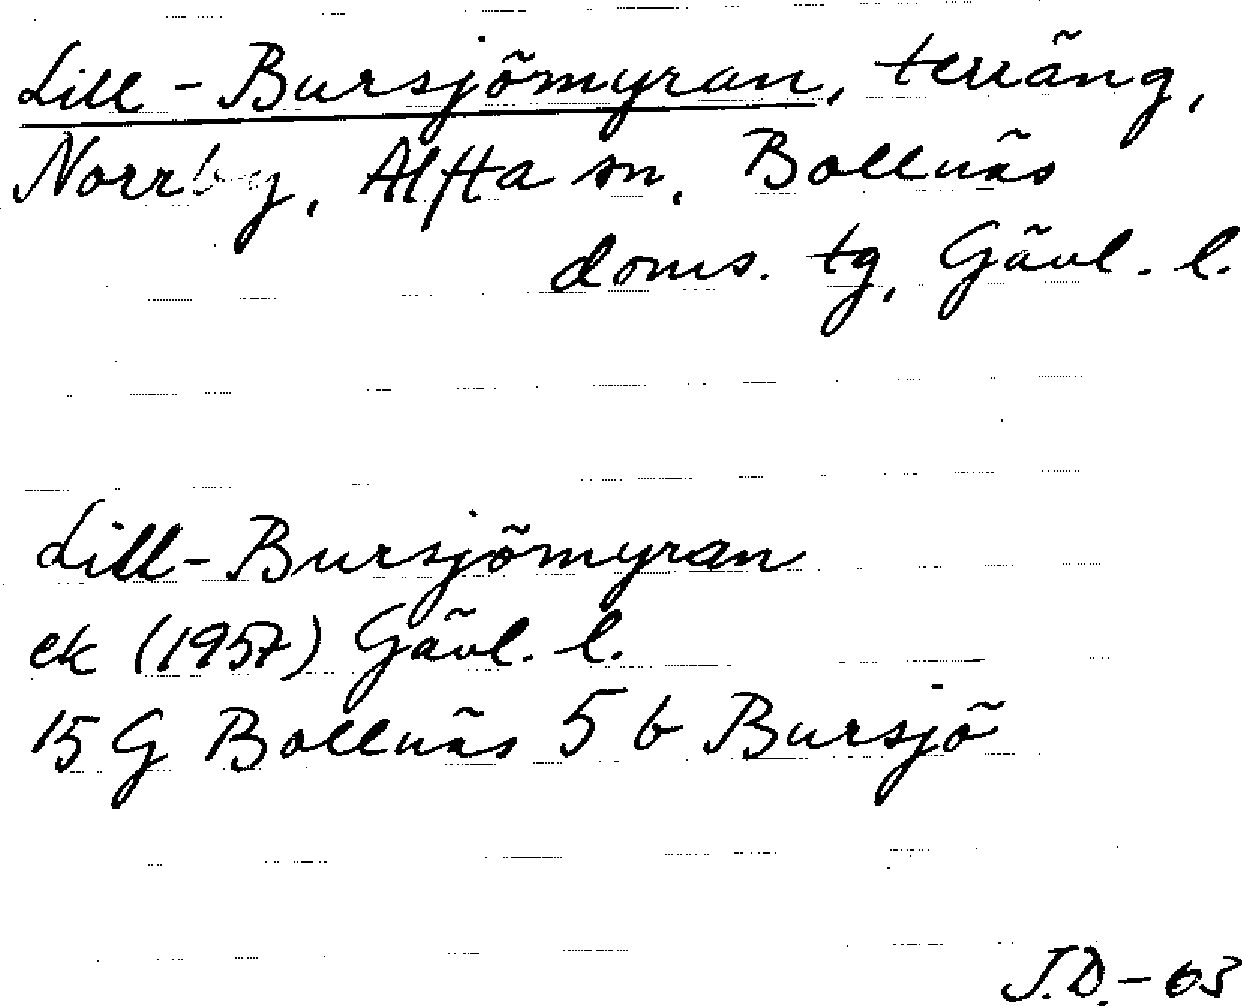 Lill-Bursjömyran, terräng,
Norrby, Alfta sn, Bollnäs
doms. tg, Gävl. l.
Lill-Bursjömyran
ek (1957) Gävl. l.
15 G Bollnäs 5 b Bursjö
J.D. - 63